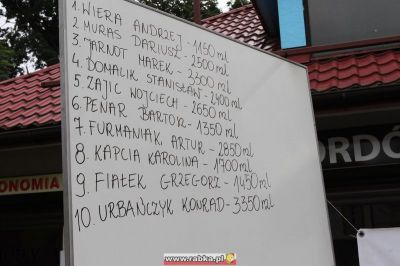 1. WIERA ANDRZEJ - 1150 ml
2 MURAS DARIUSZ - 2500 ml
3. MAREK - 3300 ml
4. DOMALIK STANISŁAW - 2400 ml
5. ZAJIC WOJCIECH - 2650 ml
6. PENAR BARTOSZ - 1350 ml
7. FURMANIAK ARTUR - 2850 ml
8. KAPCIA KAROLINA - 1700 ml
9. FIAŁEK GRZEGORZ - 1450 ml
10. URBAŃCZYK KONRAD - 3350 ml
ONOMIA
ORDÓ
www.rabka.pl